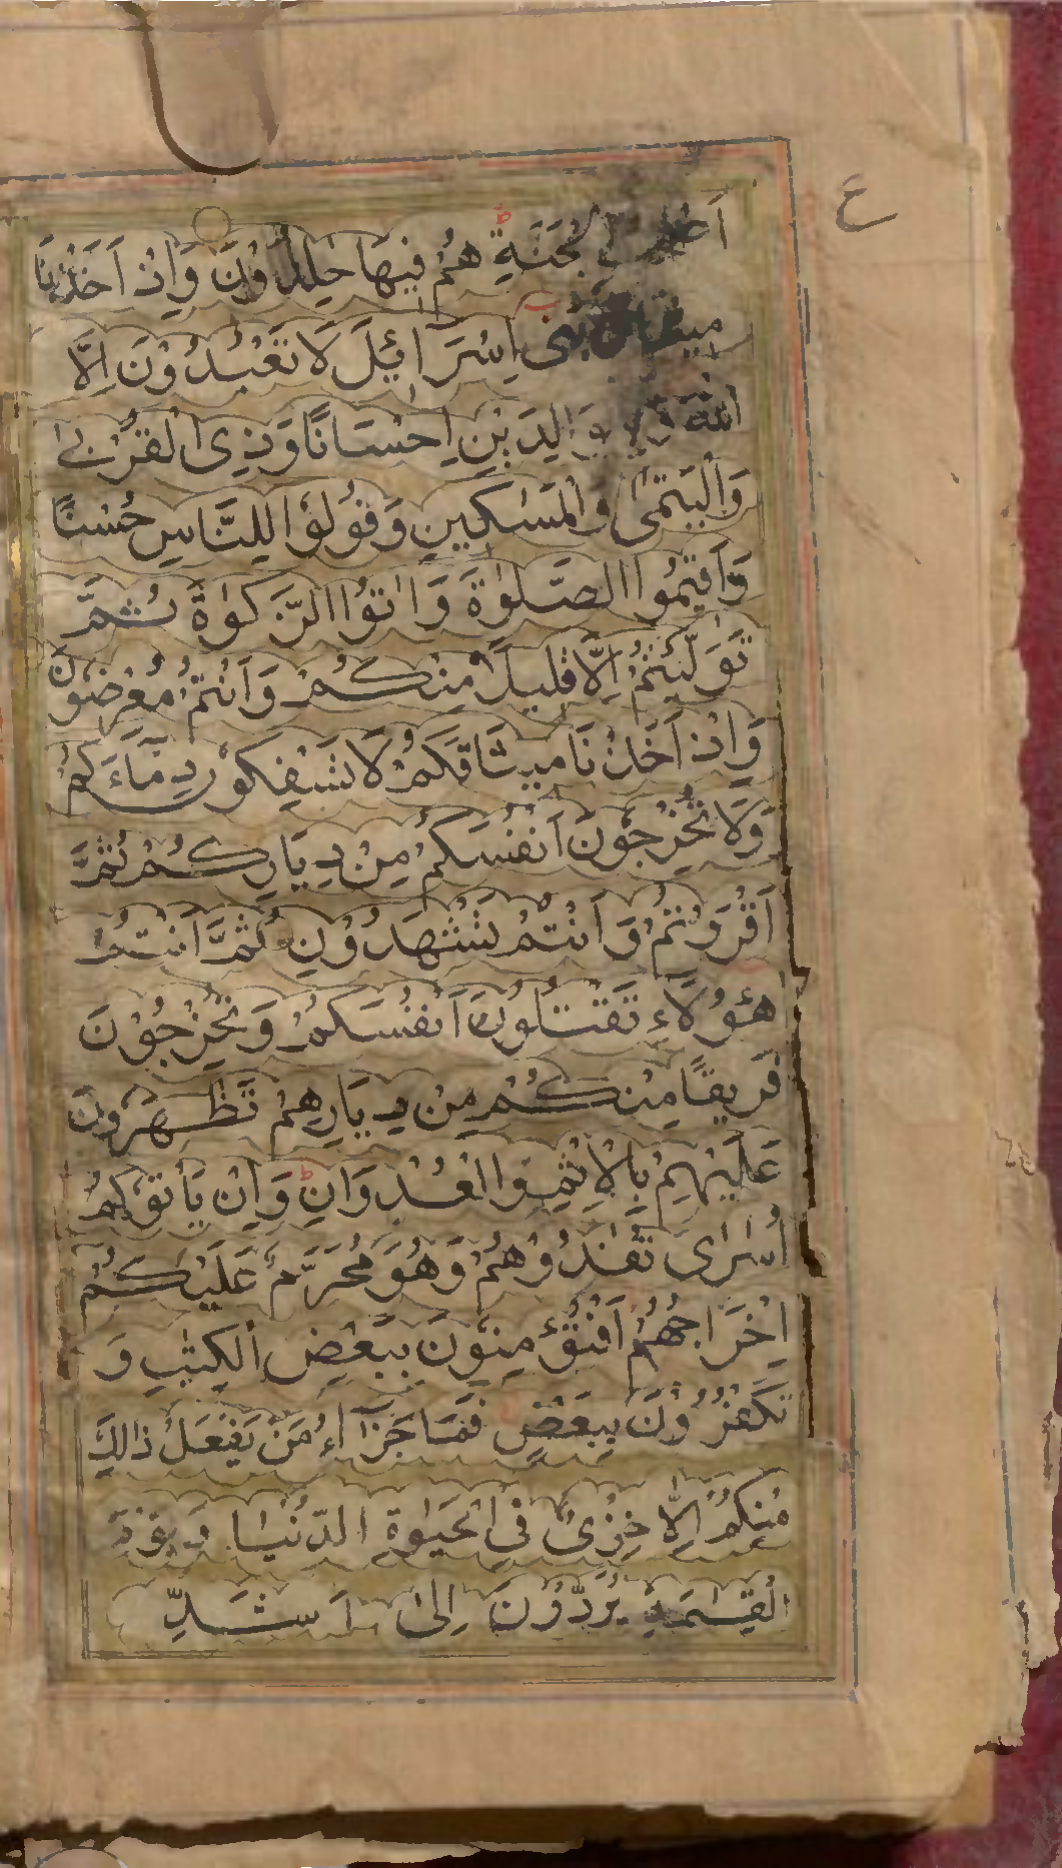 ع
اَصْحٰبُ الْجَنَّةِ هُمْ فِيْهَا خٰلِدُوْنَ وَاِذْ اَخَذْنَا
مِيْثَاقَ بَنِىْ اِسْرَآئِيْلَ لَا تَعْبُدُوْنَ اِلَّا
اللّٰهَ وَبِالْوَالِدَيْنِ اِحْسَانًا وَّذِى الْقُرْبٰى
وَالْيَتٰمٰى وَالْمَسٰكِيْنِ وَقُوْلُوْا لِلنَّاسِ حُسْنًا
وَاَقِيْمُوا الصَّلٰوةَ وَاٰتُوا الزَّكٰوةَ ثُمَّ
تَوَلَّيْتُمْ اِلَّا قَلِيْلًا مِّنْكُمْ وَاَنْتُمْ مُّعْرِضُوْنَ
وَاِذْ اَخَذْنَا مِيْثَاقَكُمْ لَا تَسْفِكُوْنَ دِمَآءَكُمْ
وَلَا تُخْرِجُوْنَ اَنْفُسَكُمْ مِنْ دِيَارِكُمْ ثُمَّ
اَقْرَرْتُمْ وَاَنْتُمْ تَشْهَدُوْنَ ثُمَّ اَنْتُمْ
هٰٓؤُلَآءِ تَقْتُلُوْنَ اَنْفُسَكُمْ وَتُخْرِجُوْنَ
فَرِيْقًا مِّنْكُمْ مِنْ دِيَارِهِمْ تَظٰهَرُوْنَ
عَلَيْهِمْ بِالْاِثْمِ وَالْعُدْوَانِ وَاِنْ يَّاْتُوْكُمْ
اُسٰرٰى تُفٰدُوْهُمْ وَهُوَ مُحَرَّمٌ عَلَيْكُمْ
اِخْرَاجُهُمْ اَفَتُؤْمِنُوْنَ بِبَعْضِ الْكِتٰبِ وَ
تَكْفُرُوْنَ بِبَعْضٍ فَمَا جَزَآءُ مَنْ يَّفْعَلُ ذٰلِكَ
مِنْكُمْ اِلَّا خِزْىٌ فِى الْحَيٰوةِ الدُّنْيَا وَيَوْمَ
الْقِيٰمَةِ يُرَدُّوْنَ اِلٰى اَشَدِّ